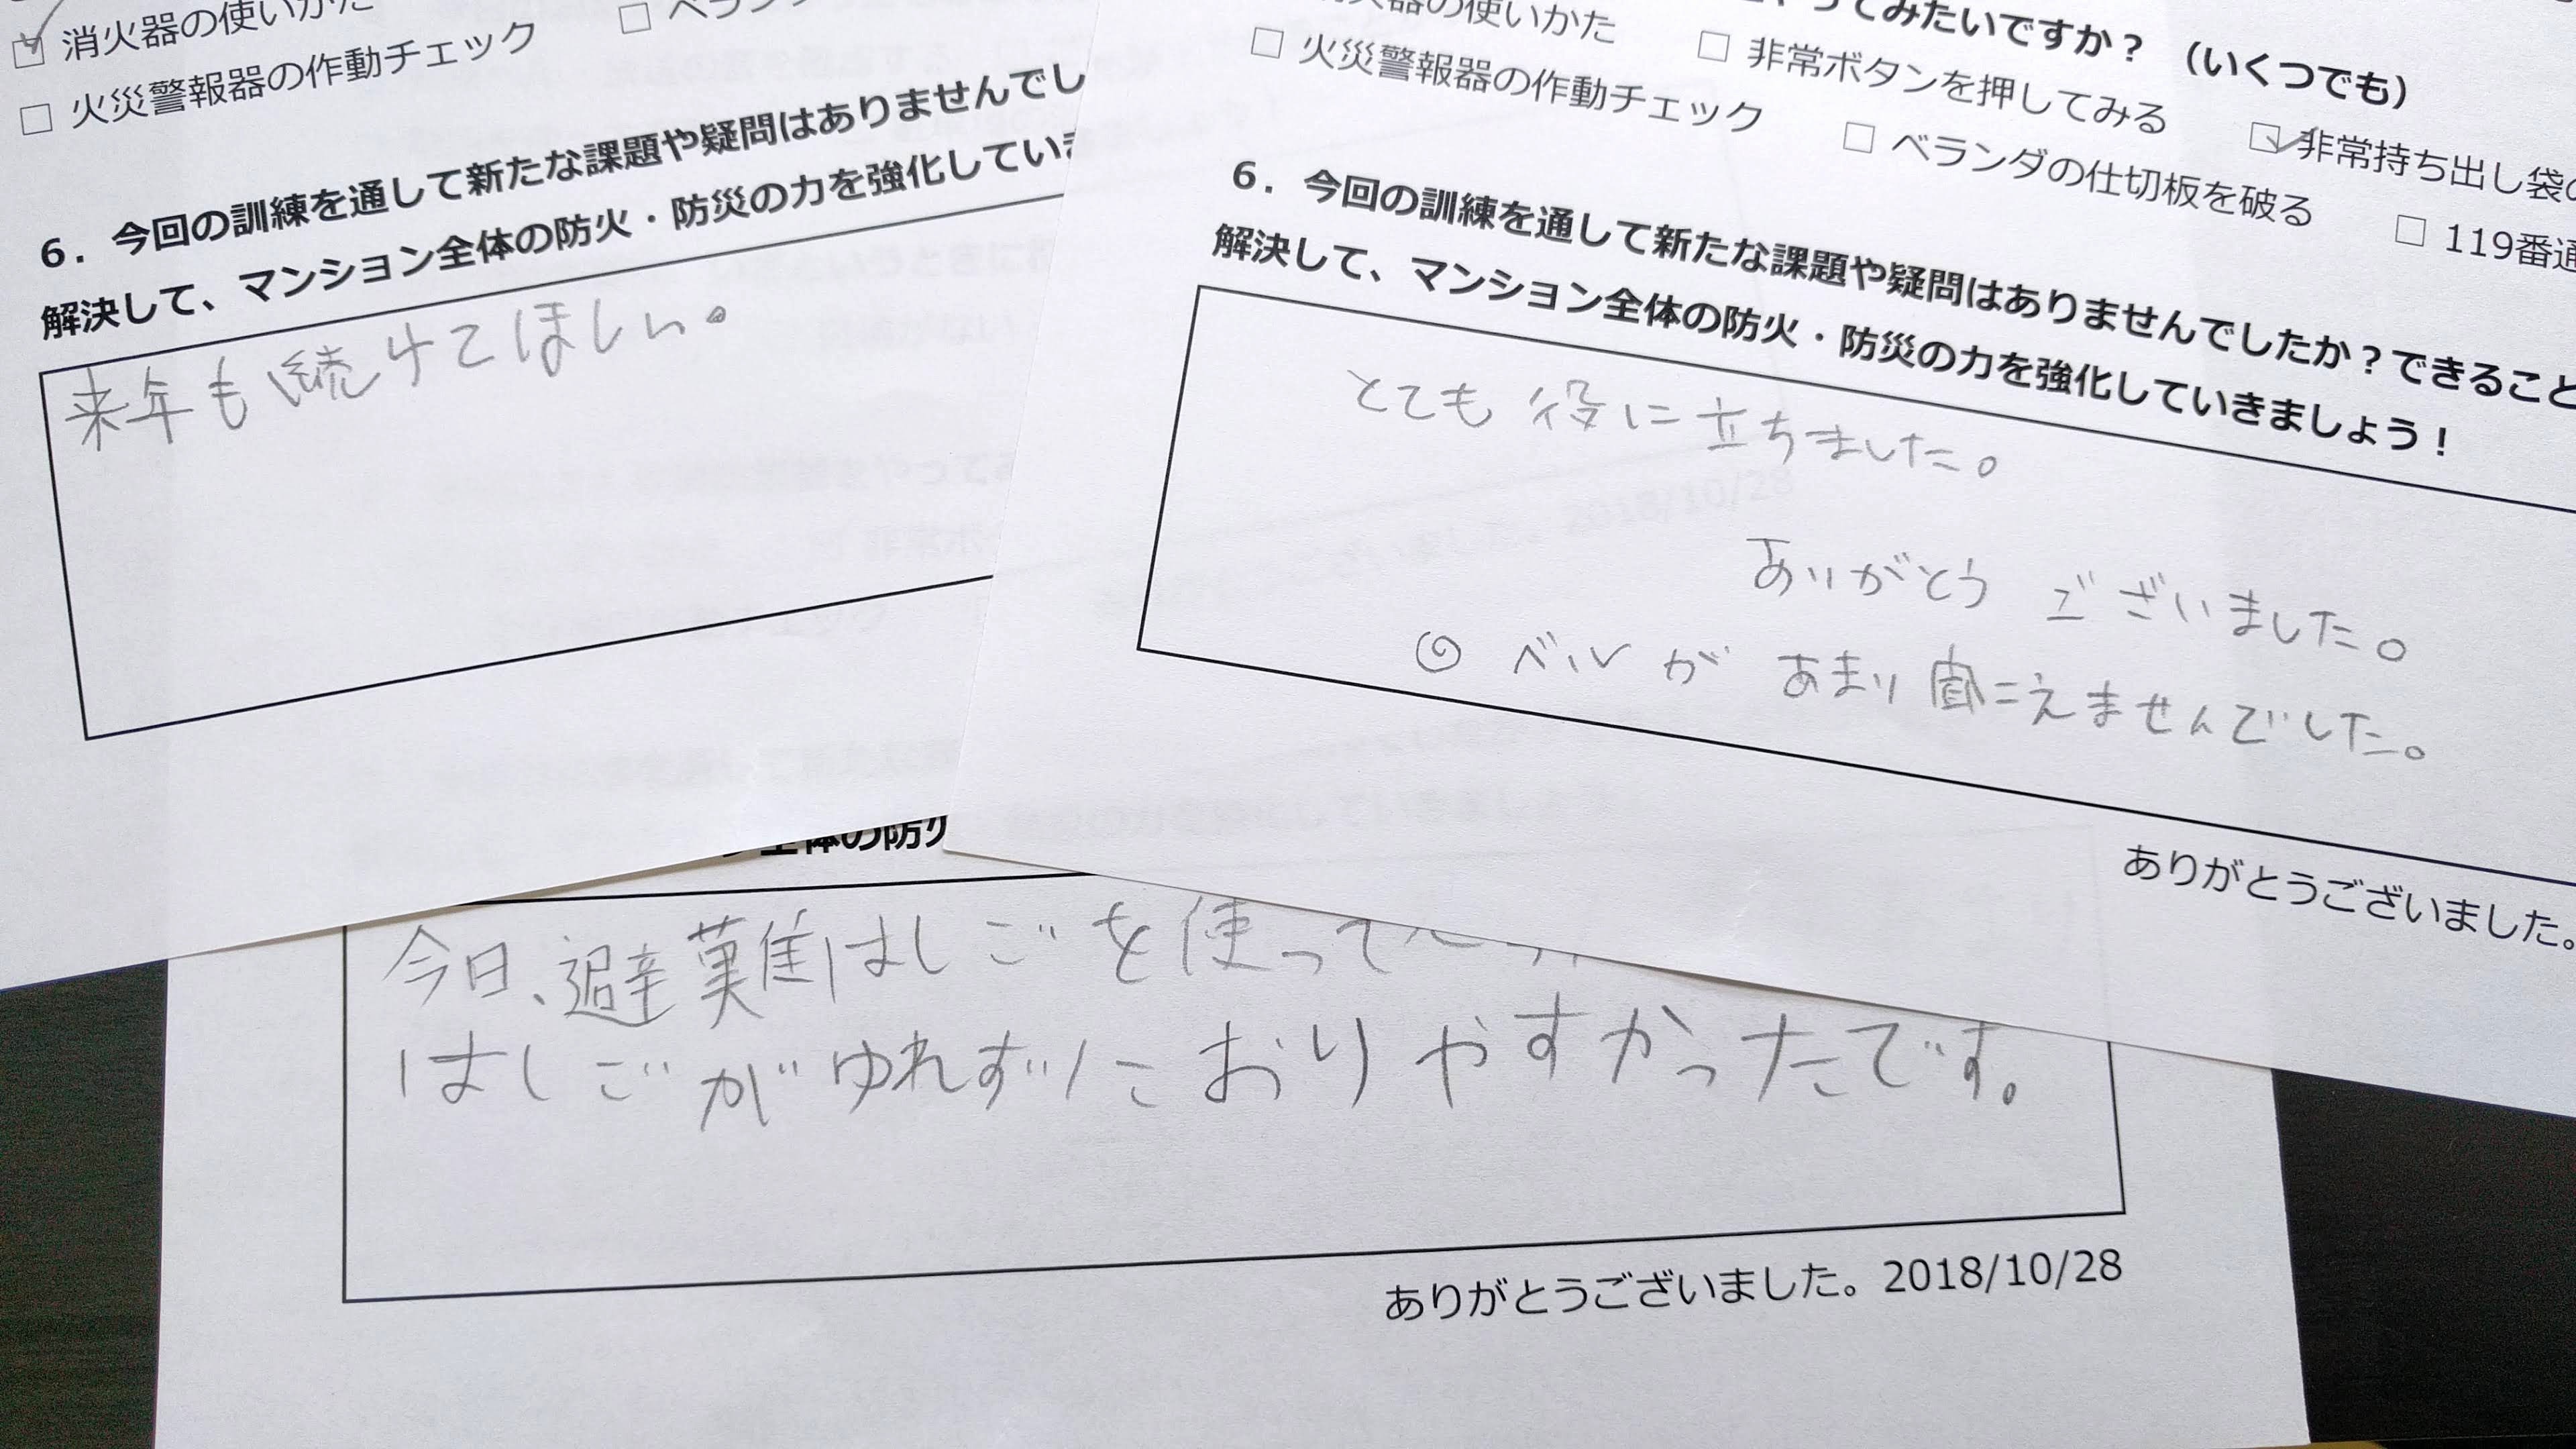 消火器の使いかた
火災警報器の作動チェック
6．今回の訓練を通して新たな課題や疑問はありませんでし
解決して、マンション全体の防火・防災の力を強化していき
来年も続けてほしい。
やってみたいですか？（いくつでも）
消火器の使いかた
非常ボタンを押してみる
非常持ち出し袋の
火災警報器の作動チェック
ベランダの仕切板を破る
119番通
6．今回の訓練を通して新たな課題や疑問はありませんでしたか？できること
解決して、マンション全体の防火・防災の力を強化していきましょう！
とても役に立ちました。
ありがとうございました。
◎ ベルがあまり聞こえませんでした。
ありがとうございました。
全体の防火
今日、避難はしごを使って
はしごがゆれずにおりやすかったです。
ありがとうございました。2018/10/28